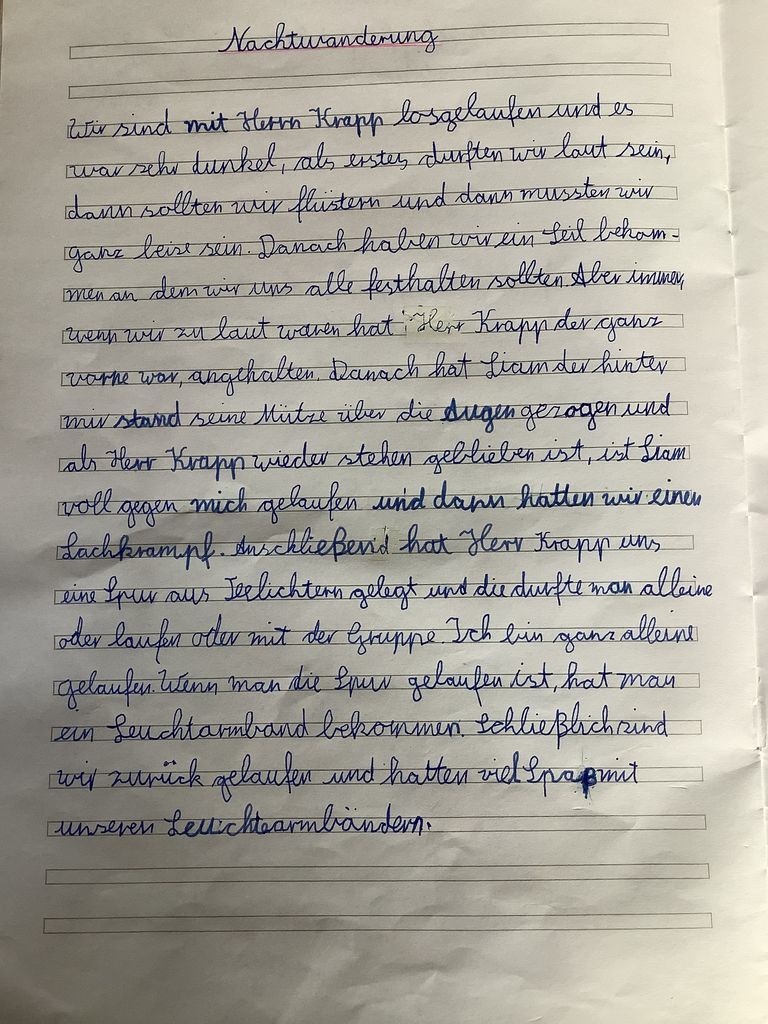 Nachtwanderung
Wir sind mit Herrn Krapp losgelaufen und es
war sehr dunkel, als erstes durften wir laut sein,
dann sollten wir flüstern und dann mussten wir
ganz leise sein. Danach haben wir ein Seil bekom-
men an dem wir uns alle festhalten sollten. Aber immer,
wenn wir zu laut waren hat Herr Krapp der ganz
vorne war, angehalten. Danach hat Liam der hinter
mir stand seine Mütze über die Augen gezogen und
als Herr Krapp wieder stehen geblieben ist, ist Liam
voll gegen mich gelaufen und dann hatten wir einen
Lachkrampf. Anschließend hat Herr Krapp uns
eine Spur aus Teelichtern gelegt und die durfte man alleine
oder laufen oder mit der Gruppe. Ich bin ganz alleine
gelaufen. Wenn man die Spur gelaufen ist, hat man
ein Leuchtarmband bekommen. Schließlich sind
wir zurück gelaufen und hatten viel Spaß mit
unseren Leuchtearmbändern.